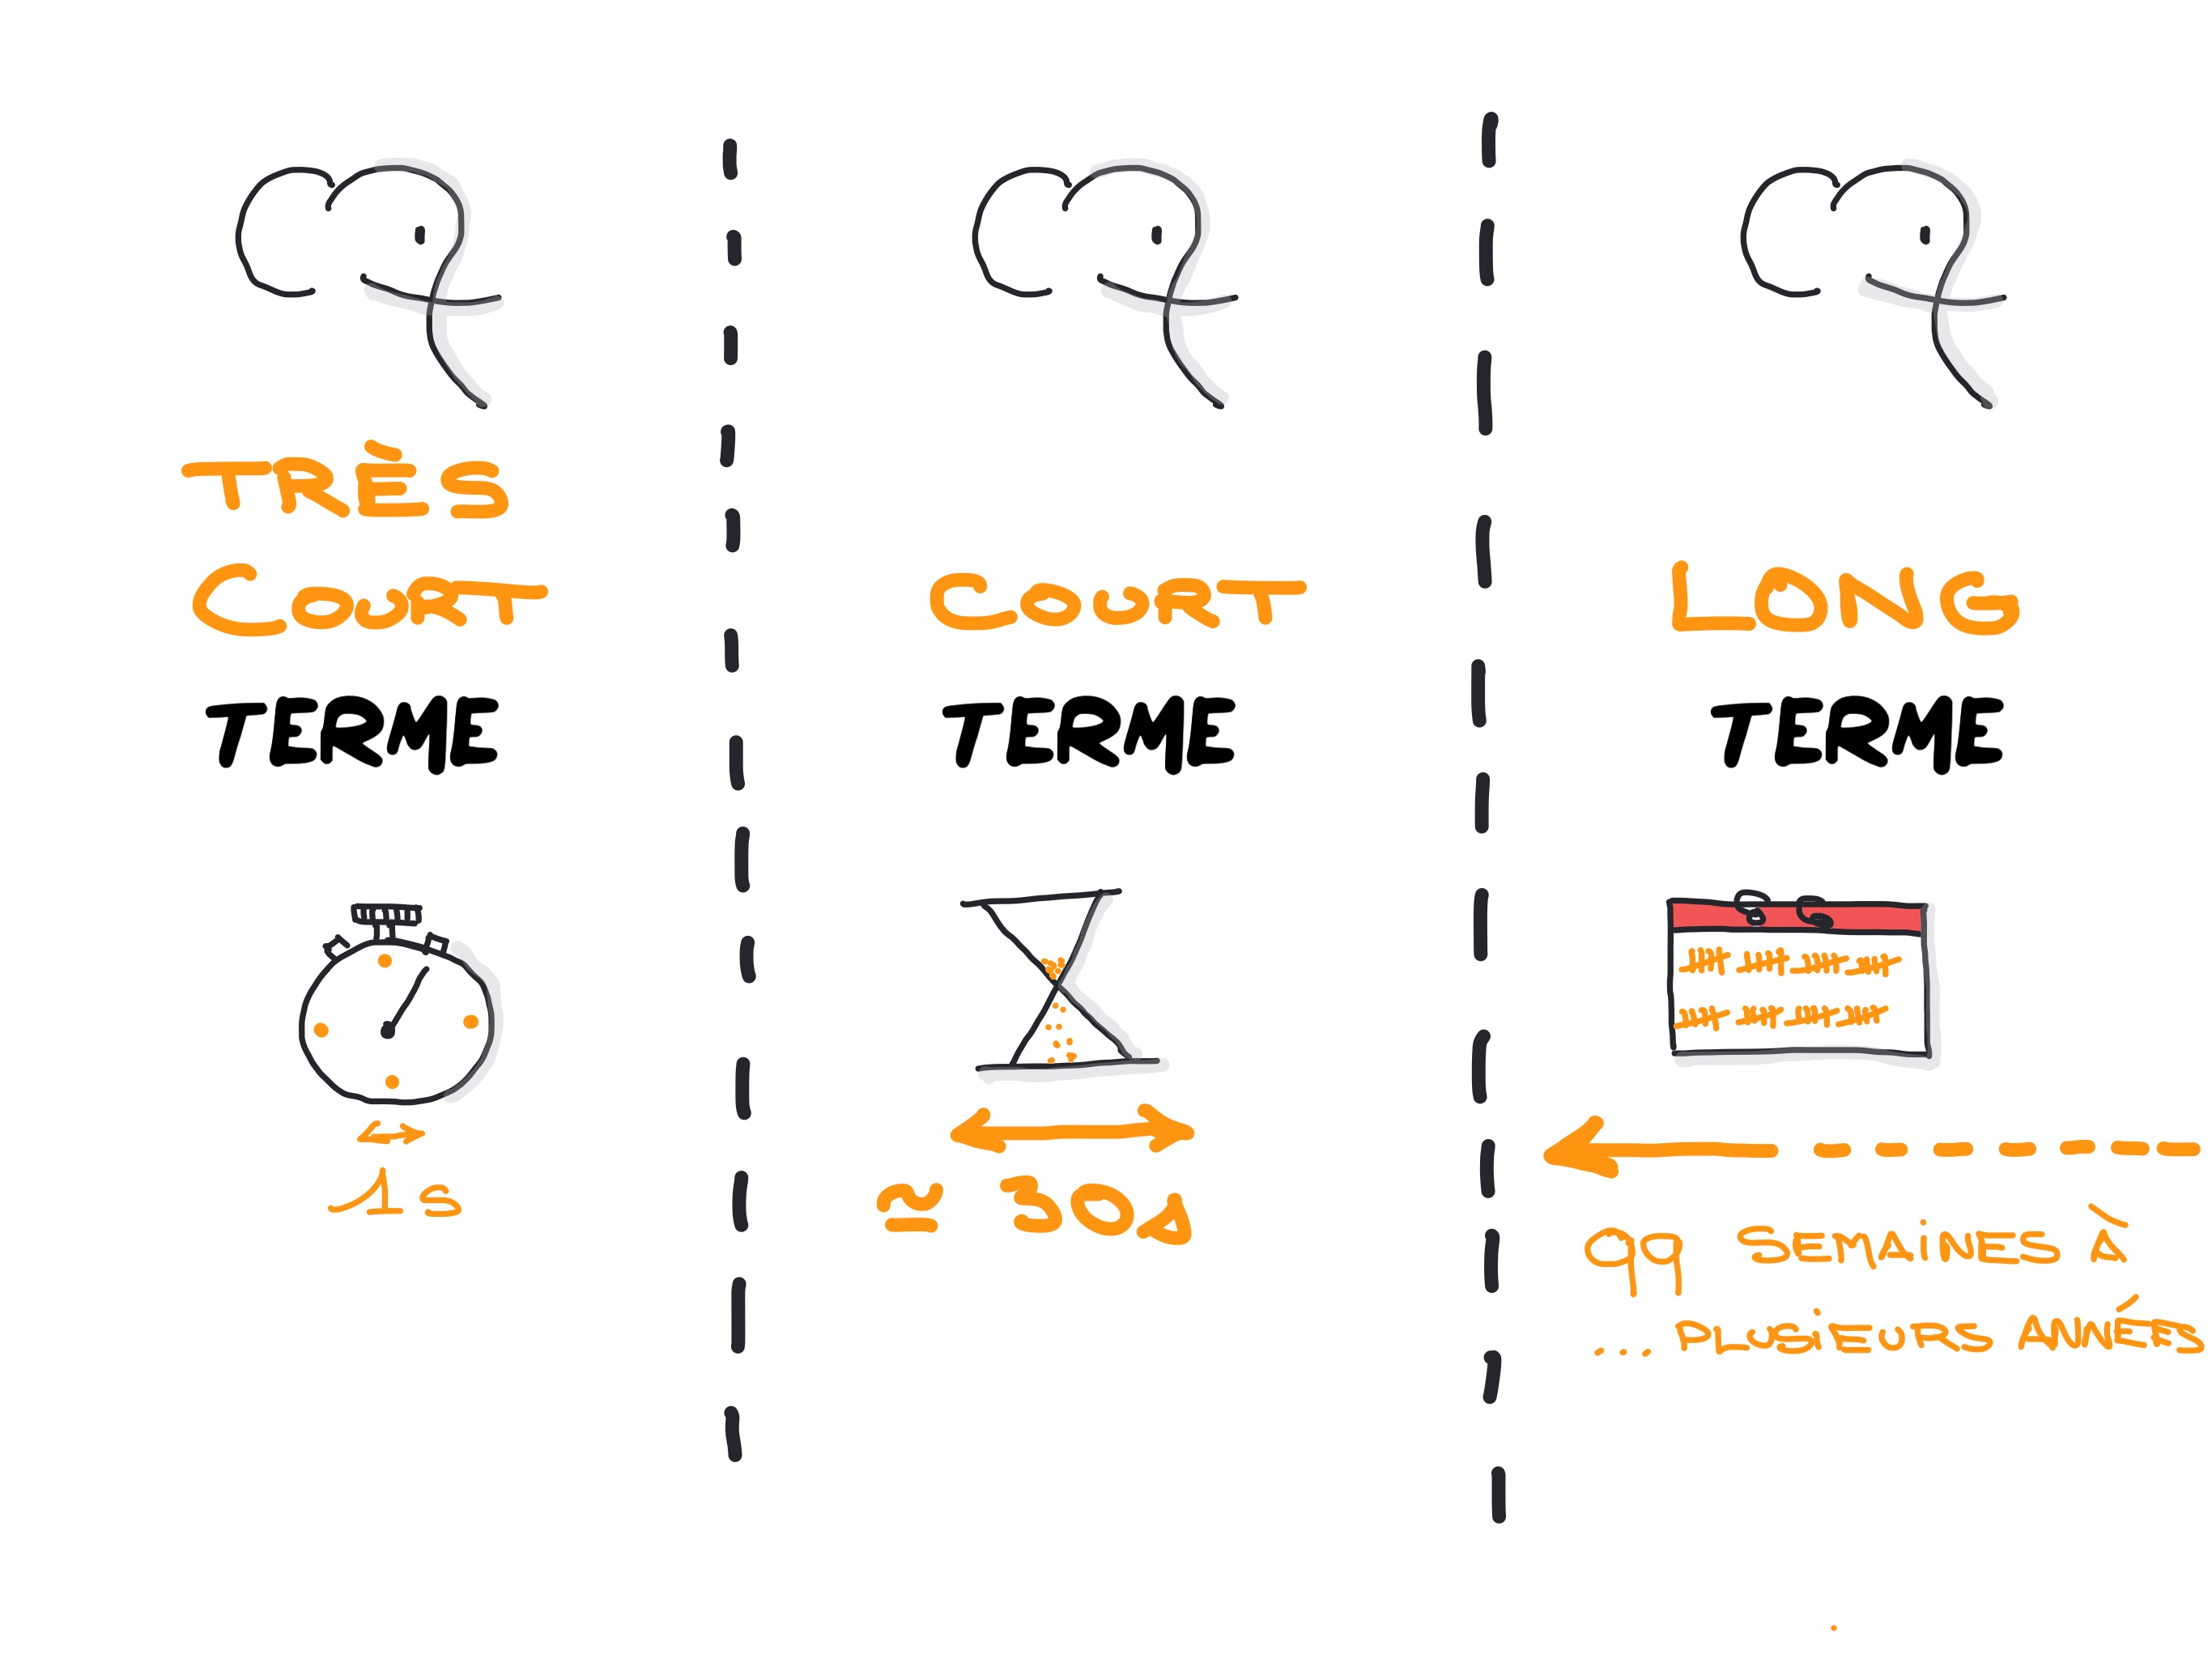 TRÈS
COURT
TERME
1s
COURT
TERME
≃ 30s
LONG
TERME
qq SEMAINES À
... PLUSIEURS ANNÉES